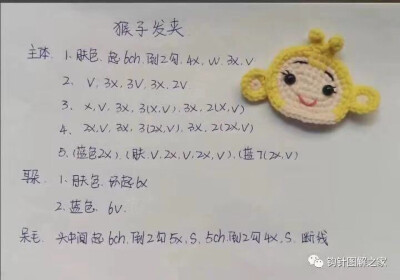 猴子发夹
主体 1. 肤色.起6ch,倒2勾.4x,w.3x,v
2. v.3x,3v,3x.2v
3. x,v.3x,3(x.v).3x,2(x,v)
4. 2x,v.3x.3(2x,v).3x.2(2x,v)
5.(蓝色2x),(肤.v.2x,v.2x,v),(蓝7(2x,v)
耳朵 1. 肤色.环起6x
2. 蓝色.6v.
呆毛 头中间起6ch,倒2勾5x,s.5ch,倒2勾4x,s.断线
钩针图解之家